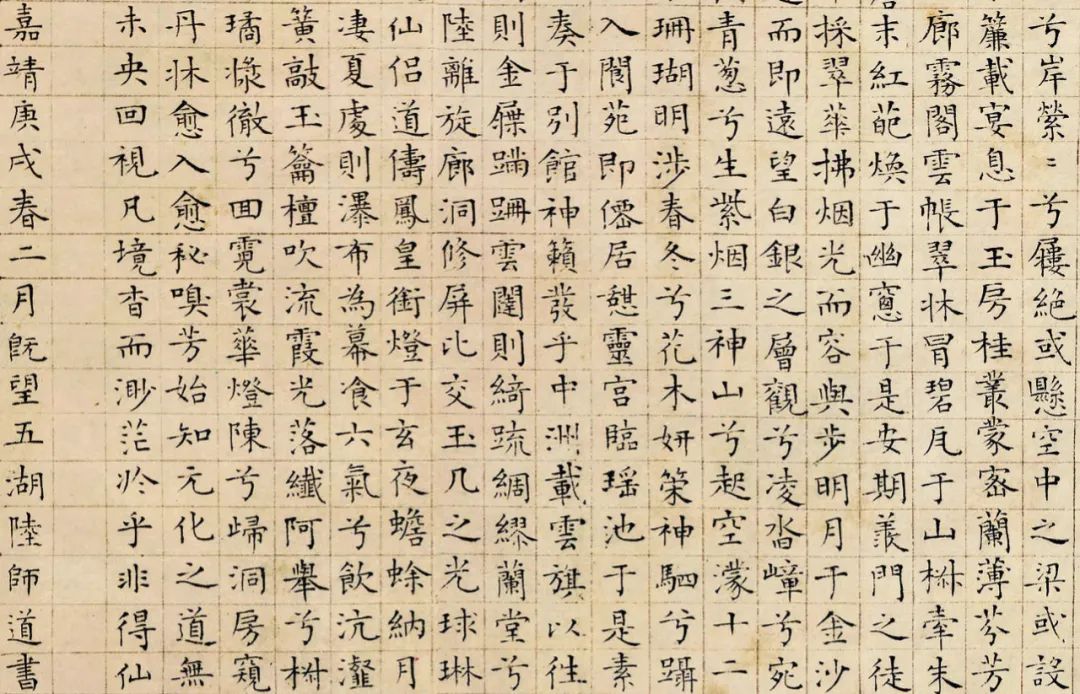 兮岸縈〻兮屨絕或懸空中之梁或設
簾載宴息于玉房桂叢蒙密蘭薄芬芳
廊霧閣雲帳翠牀冒碧瓦于山椒牽朱
末紅葩煥于幽窻于是安期羨門之徒
採翠華拂烟光而容與步明月于金沙
而即遠望白銀之層觀兮凌沓嶂兮宛
青蔥兮生紫烟三神山兮起空濛十二
珊瑚明涉春冬兮花木妍策神駟兮躡
入閬苑即僊居憇靈宮臨瑶池于是素
奏于別館神籟發乎中洲載雲旗以往
則金屧蹣跚雲闥則綺疏綢繆蘭堂兮
陸離旋廊洞修屏比交玉几之光球琳
仙侶道儔鳳皇銜燈于玄夜蟾蜍納月
凄夏處則瀑布為幕食六氣兮飲沆瀣
簧敲玉籥檀吹流霞光落纖阿舉兮椒
璚漿徹兮回霓裳華燈陳兮歸洞房窺
丹牀愈入愈秘嗅芳始知元化之道無
未央回視凡境杳而渺茫於乎非得仙
嘉靖庚戌春二月既望五湖陸師道書